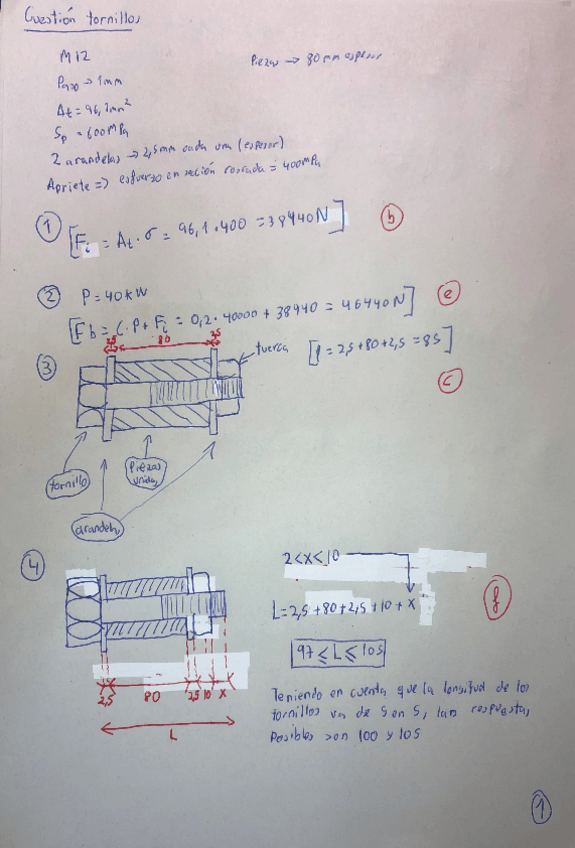 Cuestión tornillos
M12
Piezas → 80 mm espesor
Paso → 1mm
At = 96,1mm²
Sp = 600MPa
2 arandelas → 2,5mm cada una (espesor)
Apriete => esfuerzo en sección roscada = 400MPa
① [Fi = At · σ = 96,1 · 400 = 38440N] b
② P = 40kW
[Fb = C · P + Fi = 0,2 · 40000 + 38440 = 46440N] e
2,5 80 2,5
③ tuerca [l = 2,5+80+2,5 = 85]
c
tornillo
Piezas unidas
arandelas
④ 2<x<10
L=2,5+80+2,5+10+x f
97 ≤ L ≤ 105
2,5 80 2,5 10 x
L
Teniendo en cuenta que la longitud de los
tornillos va de 5 en 5, las respuestas
Posibles son 100 y 105
1